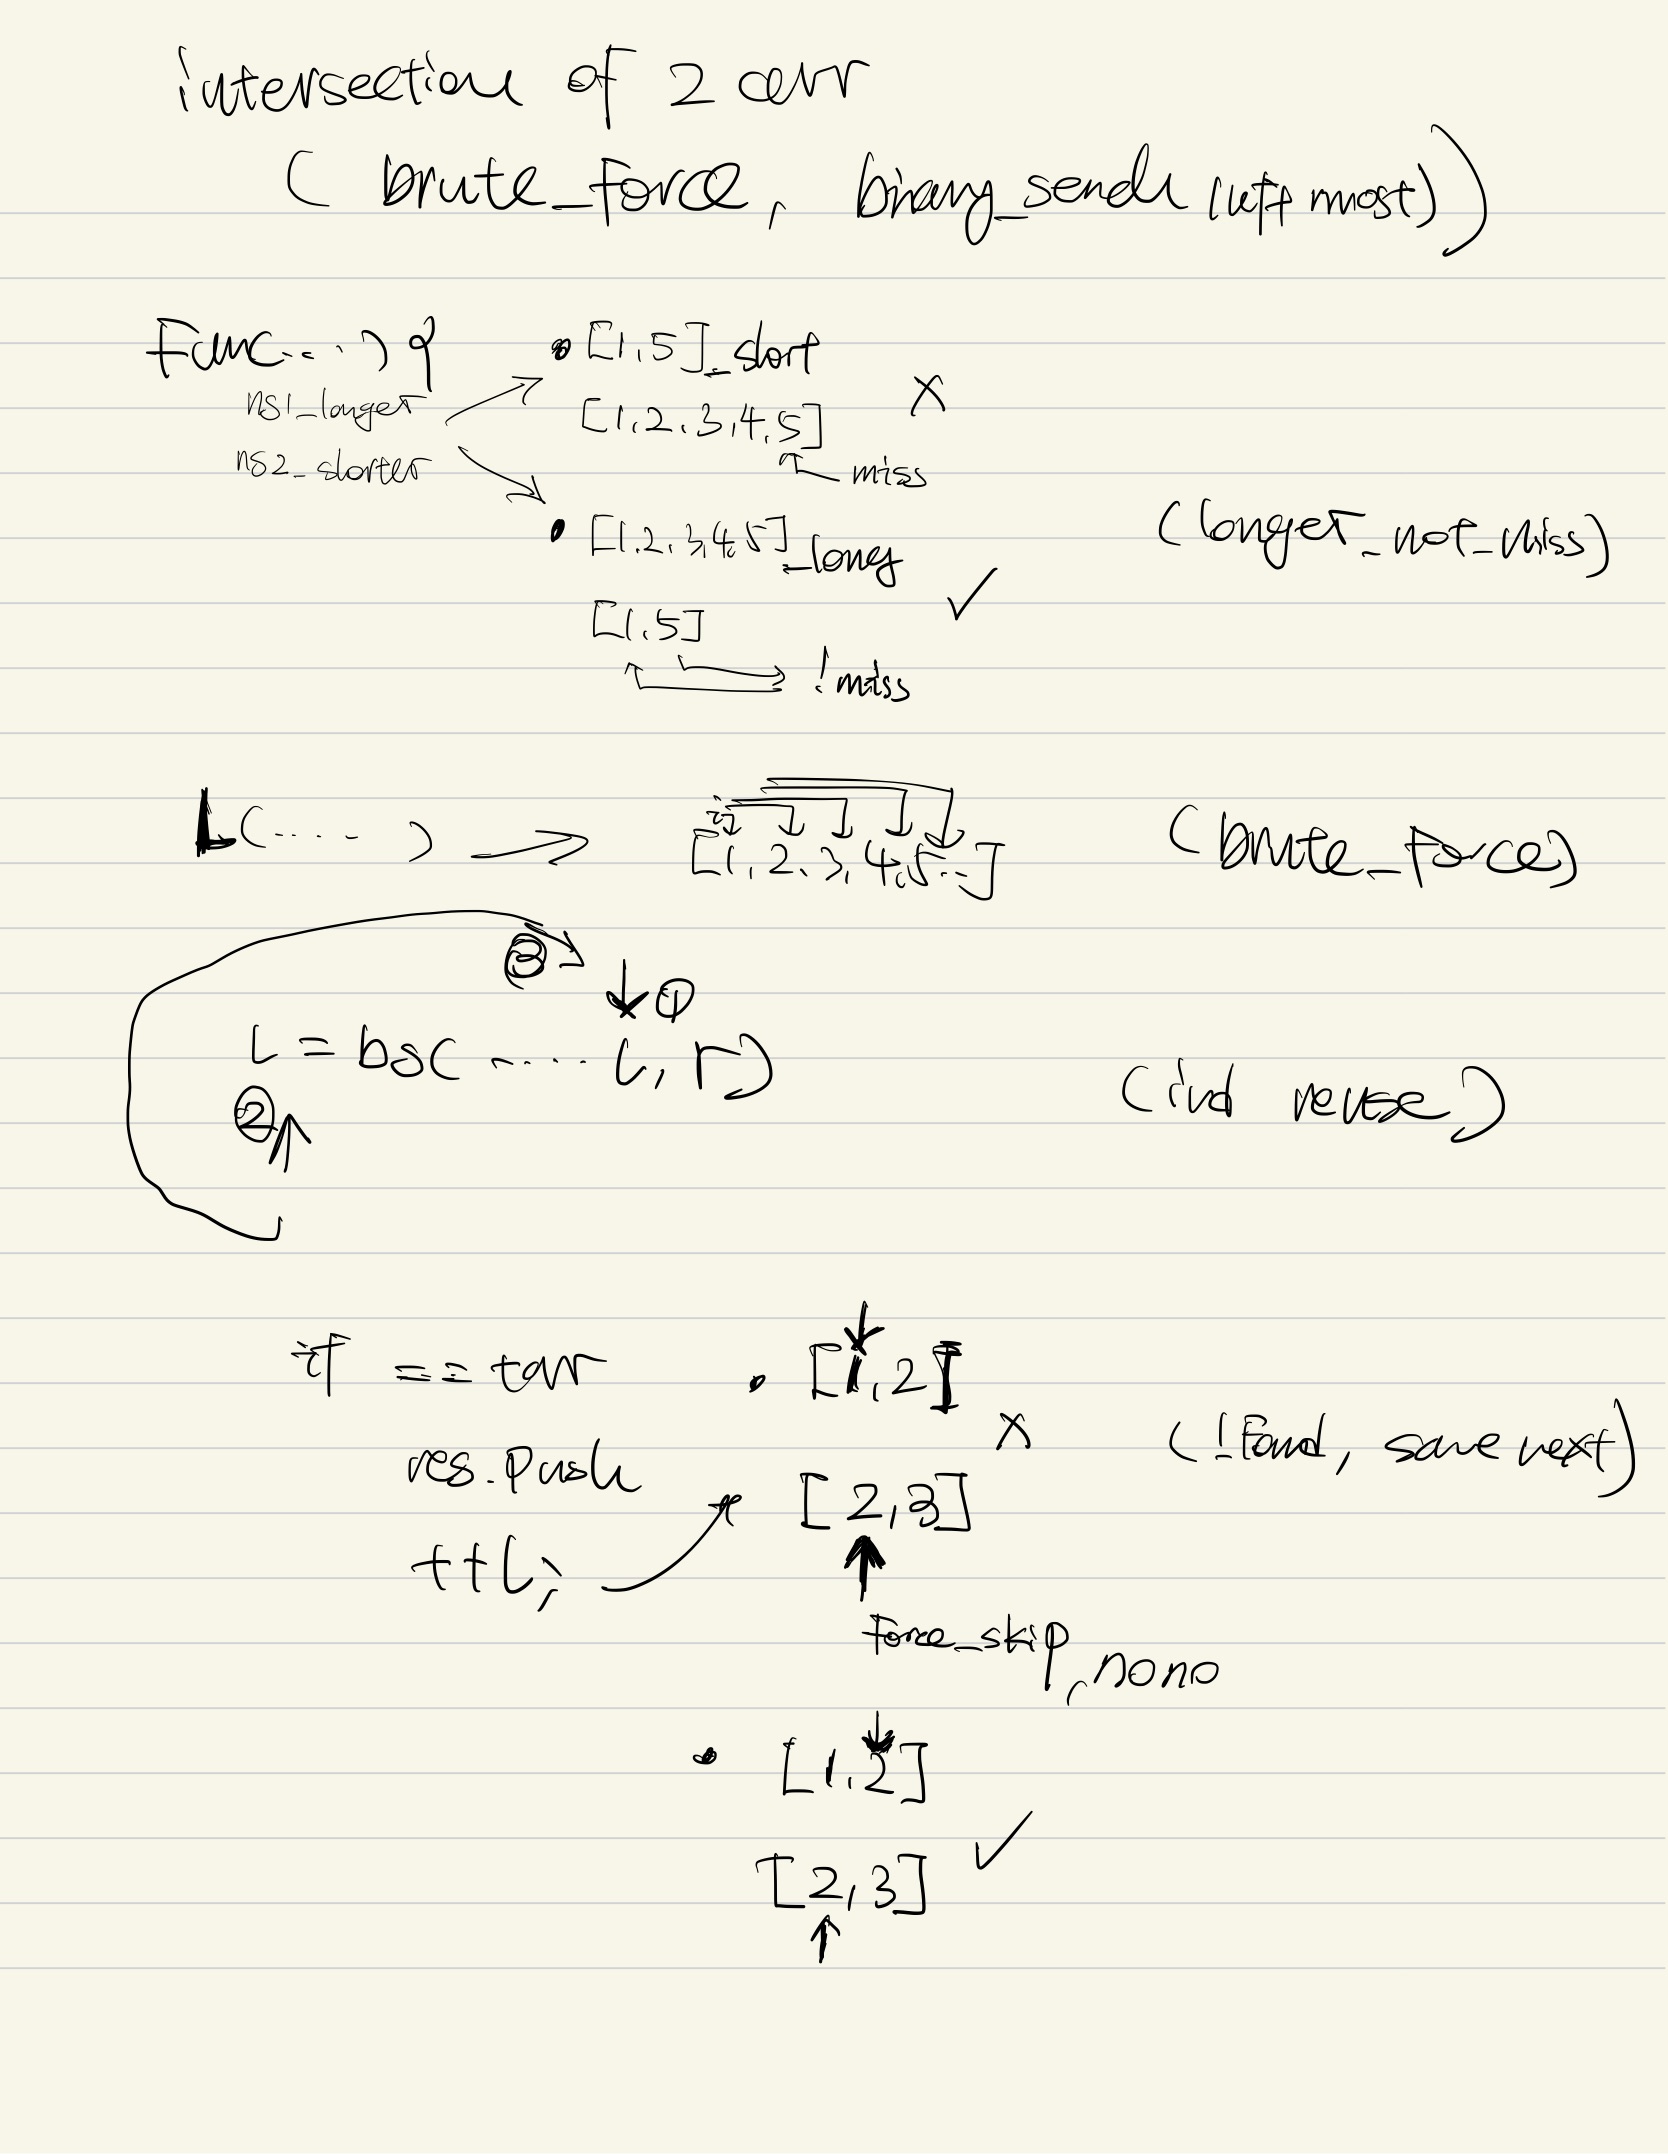 intersection of 2 arr
( brute_force, binary_search (left most))
Func(....) {
ns1_longer
ns2_shorter
• [1,5]_short
[1,2,3,4,5] X
miss
• [1,2,3,4,5]_long
[1,5] ✓
!miss
(longer_not_miss)
L(..... ) → [1,2,3,4,5..]
(brute_force)
③ ↓ ①
L = bs( ..... L, r)
②
(ind reuse)
if == tar
res.push
++L;
• [1,2]
X
[2,3]
(!Found, save next)
Force_skip, nono
• [1,2]
✓
[2,3]